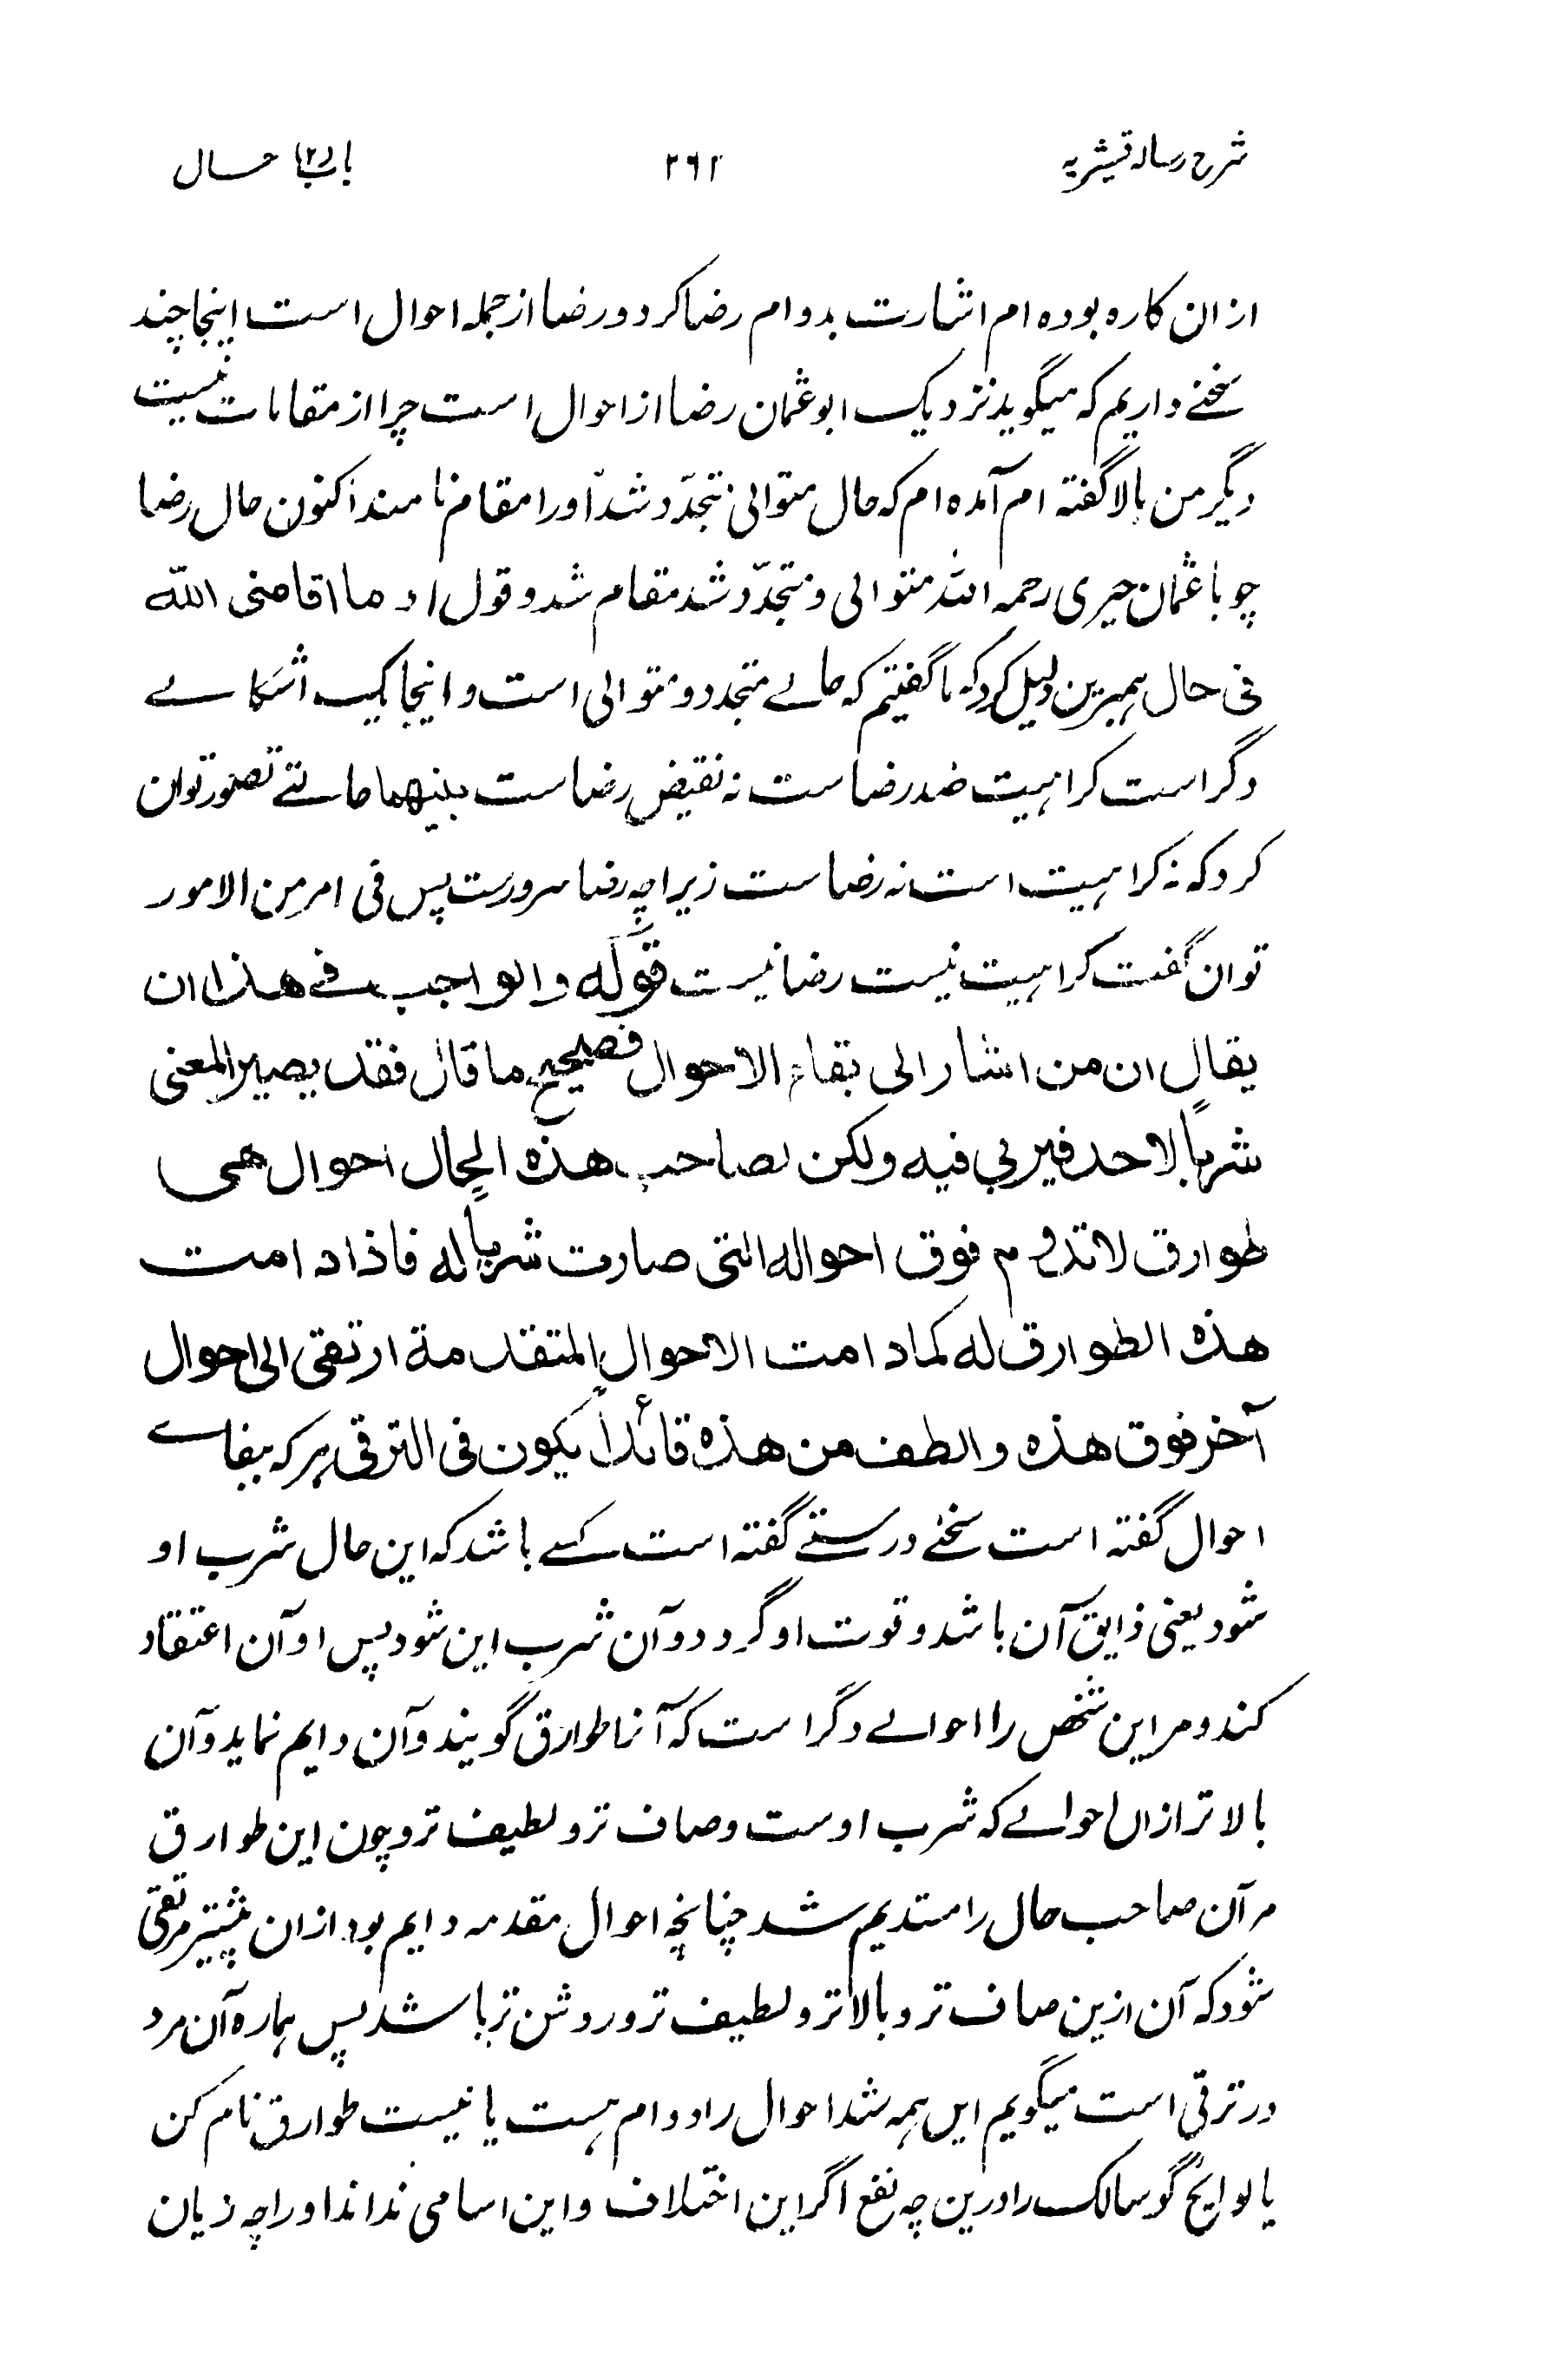 شرح رساله قشیریه
۲۶۲
باب (۲) حال
ازان کاره بوده ام اشارت بدوام رضا کرد و رضا از جمله احوال است اینجا چند
سخنے داریم که میگوید نزدیک ابوعثمان رضا از احوال است چرا از مقامات نیست
دیگر من بالا گفته ام آمده ام که حال متوالی متجدّد شد اورا مقام نامند اکنون حال رضا
چو باعثمان حیری رحمه الله متوالی و متجدّد شد مقام شد و قول او ما اقامنی الله
فی حال بهمبرین دلیل کرد که ما گفتیم که حالے متجدد و متوالی است و اینجا یک اشکالے
دگر است کراهیت ضد رضاست نه نقیض رضاست بینهما حالتے تصور توان
کرد که نه کراهیت است نه رضاست زیراچه رضا سرورست پس فی امر من الامور
توان گفت کراهیت نیست رضا نیست قوله والواجب فی هذا ان
یقال ان من اشار الی بقاء الاحوال فصحیح ما قال فقد یصیر المعنی
شرباً لاحد فیربی فیه ولکن لصاحب هذه الحال احوال هی
طوارق لا تدوم فوق احواله التی صارت شرباً له فاذا دامت
هذه الطوارق له کما دامت الاحوال المتقدمة ارتقی الی احوال
آخر فوق هذه والطف من هذه فابداً یکون فی الترقی هر که ببقاے
احوال گفته است سخنے درستے گفته است کسے باشد که این حال شرب او
شود یعنی ذایق آن باشد و قوت او گردد و آن شرب این شود پس او آن اعتقاد
کند و مر این شخص را احوالے دگر است که آنرا طوارق گویند و آن دایم نماید و آن
بالاتر ازاں احوالے که شرب اوست و صاف تر و لطیف تر و چون این طوارق
مر آن صاحب حال را مستدیم شد چنانچه احوال مقدمه دایم بود ازان بیشتر مرتقی
شود که آن ازین صاف تر و بالاتر و لطیف تر و روشن تر باشد پس هماره آن مرد
در ترقی است میگویم ایں همه شد احوال را دوام هست یا نیست طوارق نام کن
یا لوایح گو سالک را درین چه نفع اگر این اختلاف و این اسامی نداند او را چه زیان